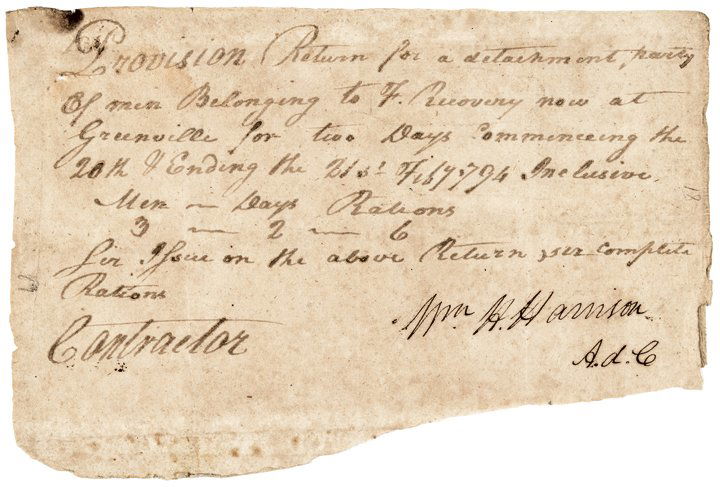 Provision Return for a detachment, party
Of men Belonging to F. Recovery now at
Greenville for two Days Commenceing the
20th & Ending the 21st 1794 Inclusive.
Men — Days Rations
3 — 2 — 6
Sir Issue on the above Return six complete
Rations
Wm H. Harrison
Contractor
A.d.C